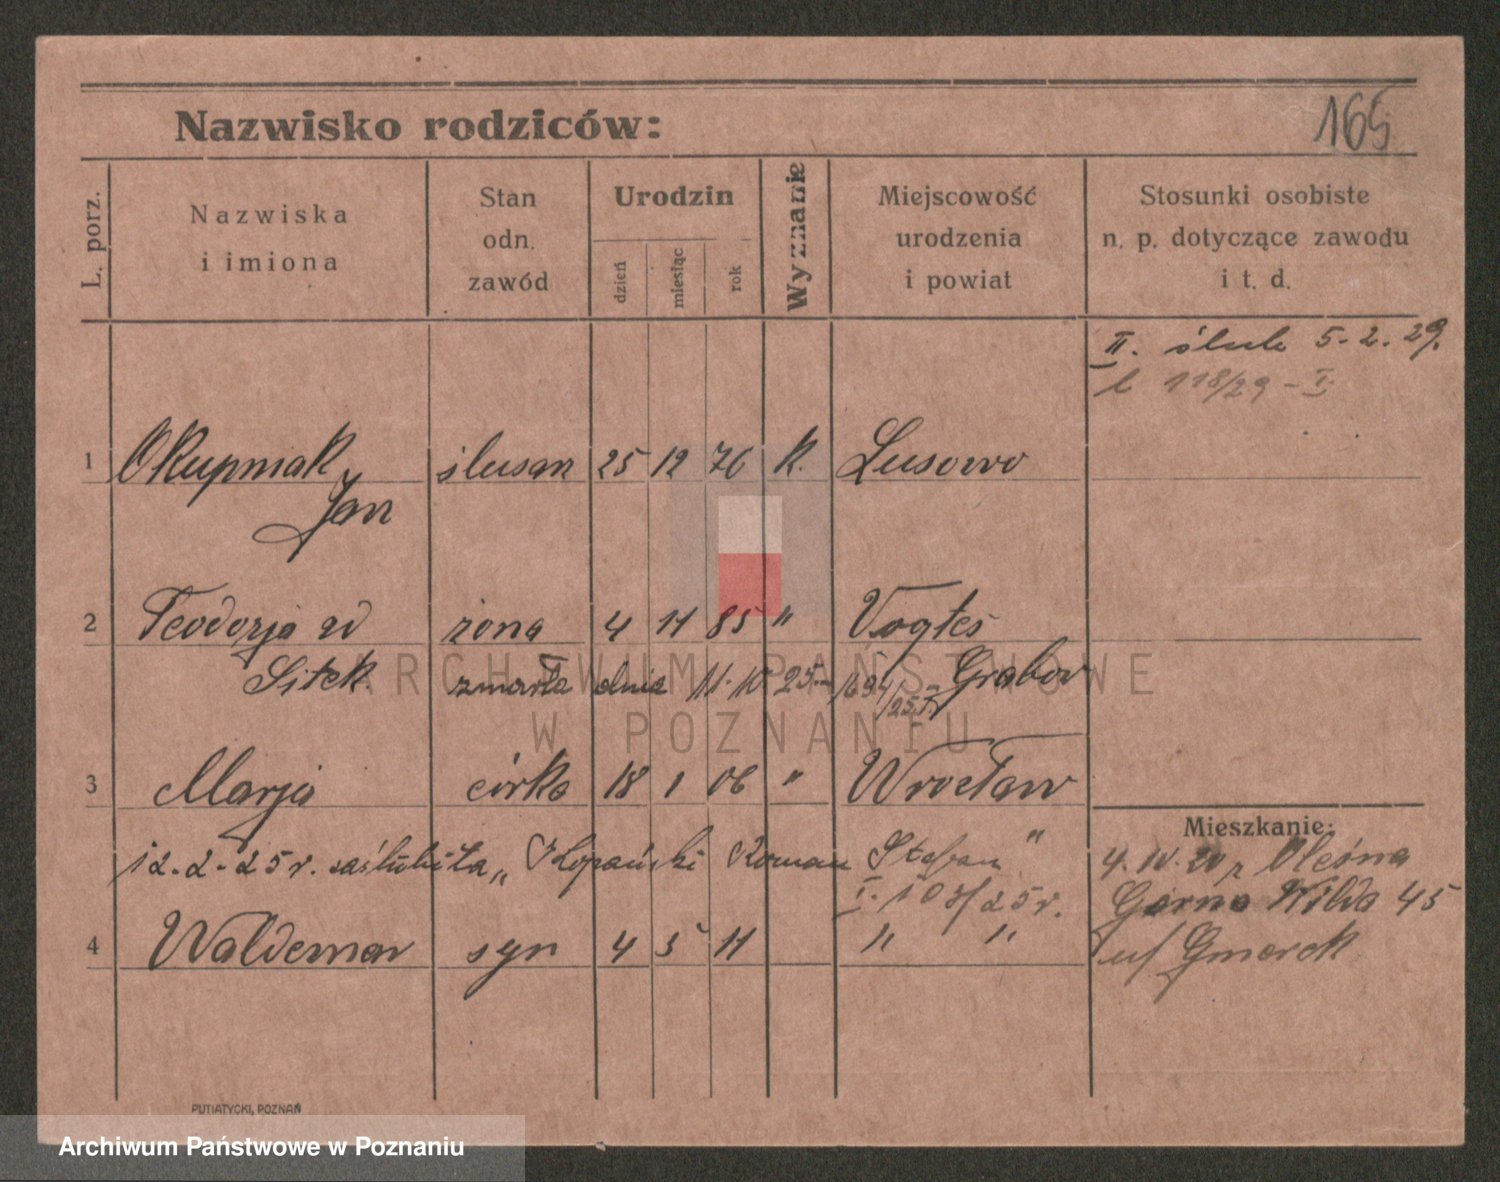 165
Nazwisko rodziców:
L. porz.
Nazwiska
i imiona
Stan
odn.
zawód
Urodzin
dzień
miesiąc
rok
Wyznanie
Miejscowość
urodzenia
i powiat
Stosunki osobiste
n. p. dotyczące zawodu
i t. d.
II. ślub 5-2.29.
118/29 - I
1 Okupniak ślusarz 25 12 76 k. Lusowo
Jan
2 Teodozja zd żona 4 11 85 " Vogtes
Sitek zmarła dnia 11-10 25 Grabow
ARCHIWUM PAŃSTWOWE
W POZNANIU
3 Marja córka 18 1 06 " Wrocław
Mieszkanie:
12-2-25 r. zaślubiła „Kłopański Roman Stefan"
I. 108/25 r.
4 Waldemar syn 4 5 11 " "
4.IV.20 r Oleśna
Górna Wilda 45
u/ Gmerek
PUTIATYCKI, POZNAŃ
Archiwum Państwowe w Poznaniu